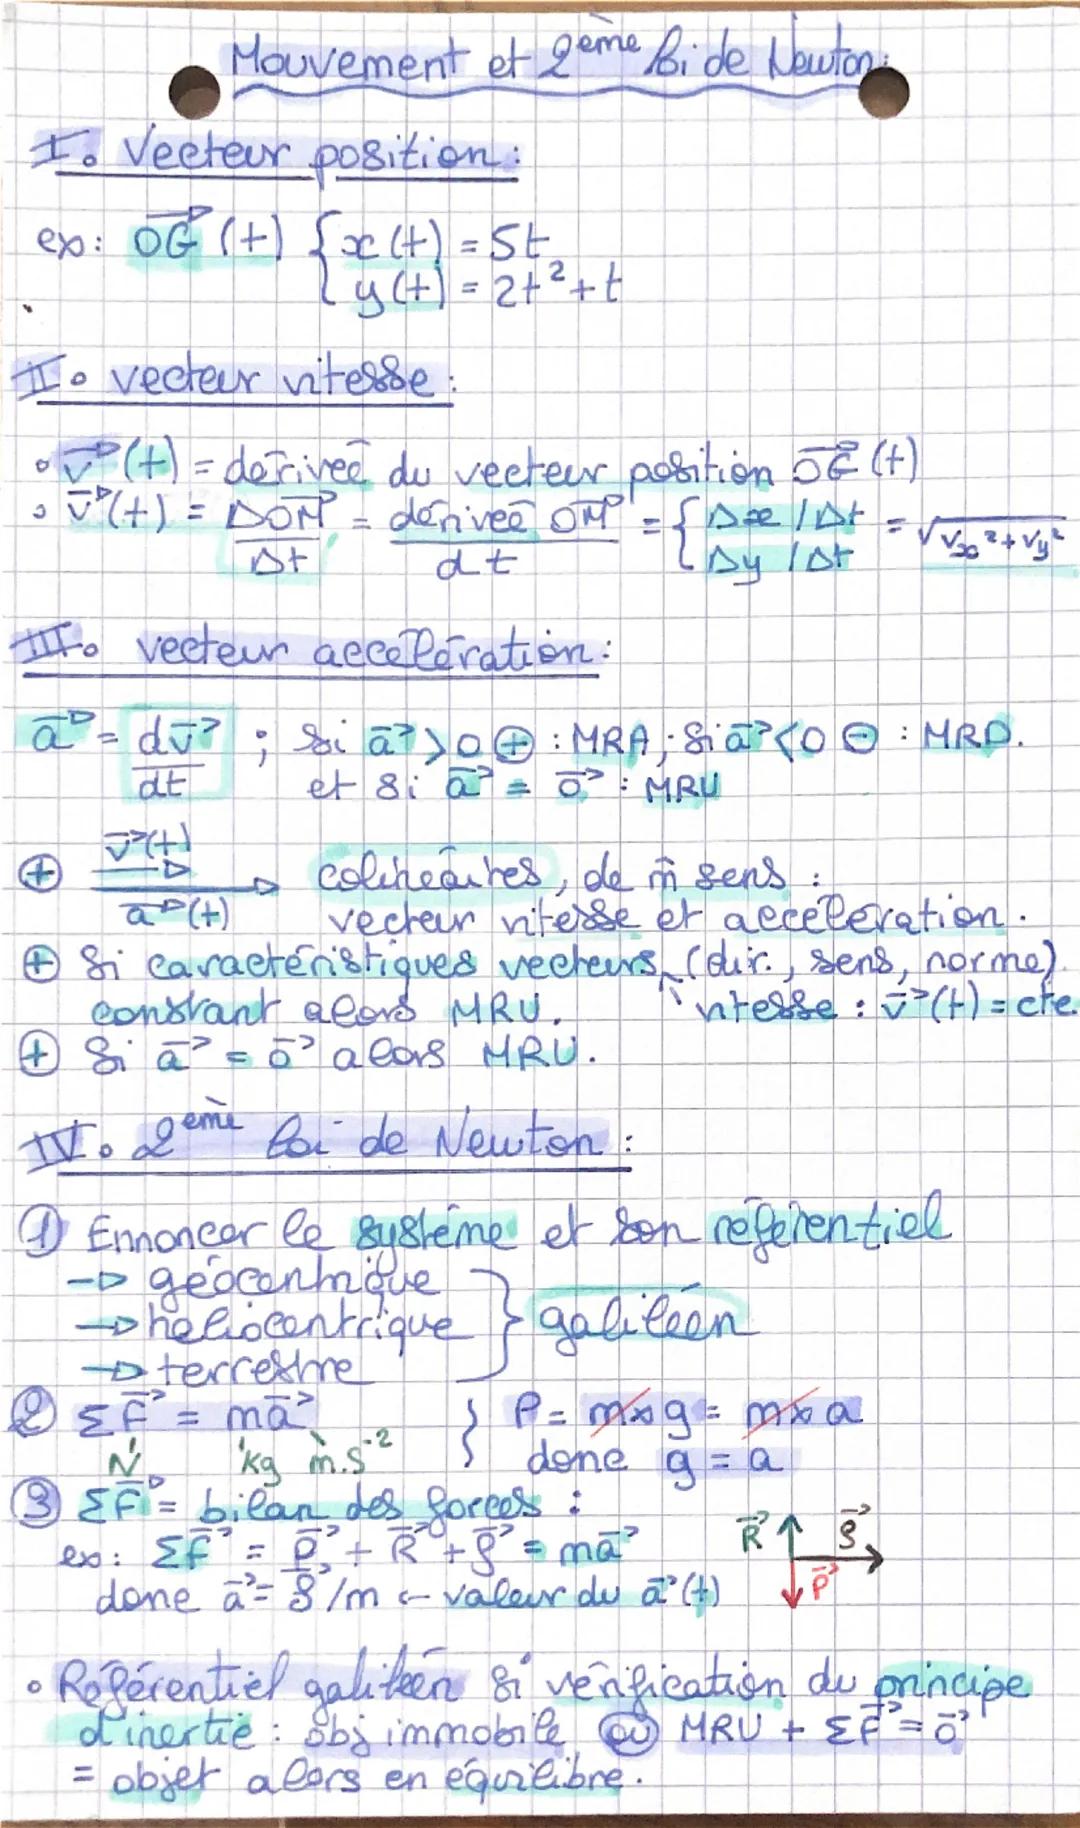 Mouvement et 2ème loi de Newton:
I. Vecteur position:
ex: OG→ (t) { x(t) = 5t
y(t) = 2t² + t
II. vecteur vitesse:
• v→(t) = dérivée du vecteur position OG→ (t)
• v→(t) = ΔOM→/Δt = dérivée OM→/dt = { Δx/Δt = √vx² + vy²
Δy/Δt
III. vecteur accélération:
a→ = dv→/dt ; Si a→ > 0 ⊕ : MRA ; Si a→ < 0 ⊖ : MRD.
et si a→ = 0→ : MRU
⊕ v→(t) a→(t) colinéaires, de m̄ sens :
vecteur vitesse et accélération.
⊕ Si caractéristiques vecteurs (dir., sens, norme)
constant alors MRU. vitesse : v→(t) = cte.
⊕ Si a→ = 0→ alors MRU.
IV. 2ème loi de Newton :
① Ennoncer le système et son référentiel
→ géocentrique
→ héliocentrique } galiléen
→ terrestre
② ΣF→ = ma→ } P = m×g = m×a
N kg m.s⁻² donc g = a
③ ΣF→ = bilan des forces :
ex: Σf→ = P→ + R→ + f→ = ma→ R→ f→
donc a→ = f→/m ← valeur du a→(t) P→
• Référentiel galiléen si vérification du principe
d'inertie : obj immobile ou MRU + ΣF→ = 0→
= objet alors en équilibre.